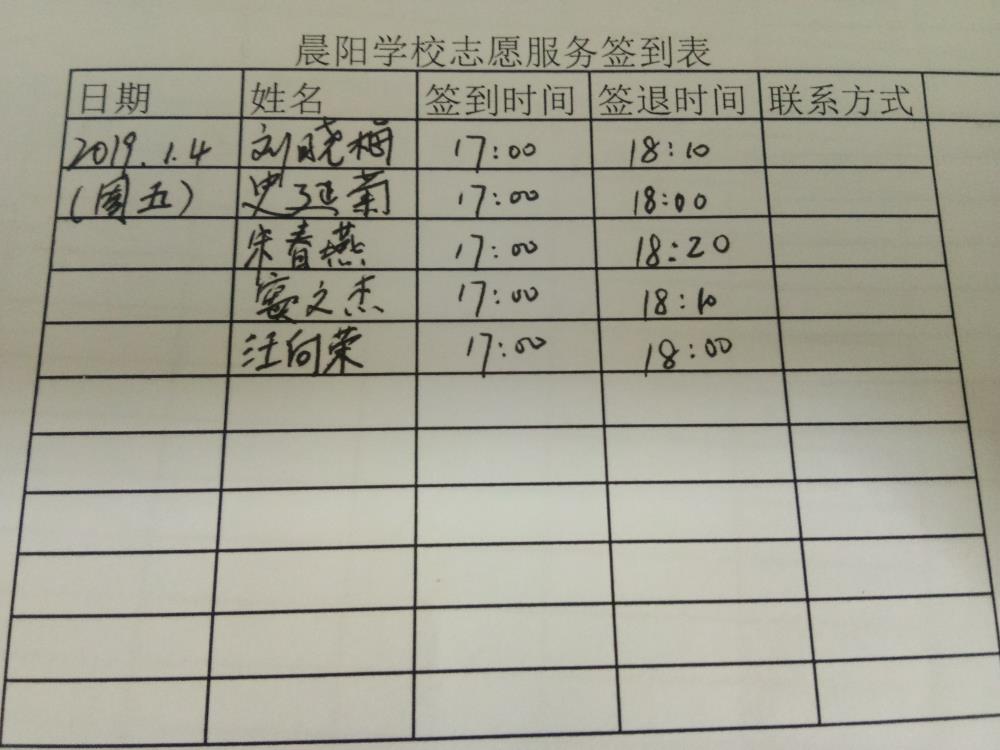 晨阳学校志愿服务签到表
日期 姓名 签到时间 签退时间 联系方式
2019.1.4 刘晓梅 17:00 18:10
(周五) 史延菊 17:00 18:00
宋春燕 17:00 18:20
窦文杰 17:00 18:10
汪向荣 17:00 18:00